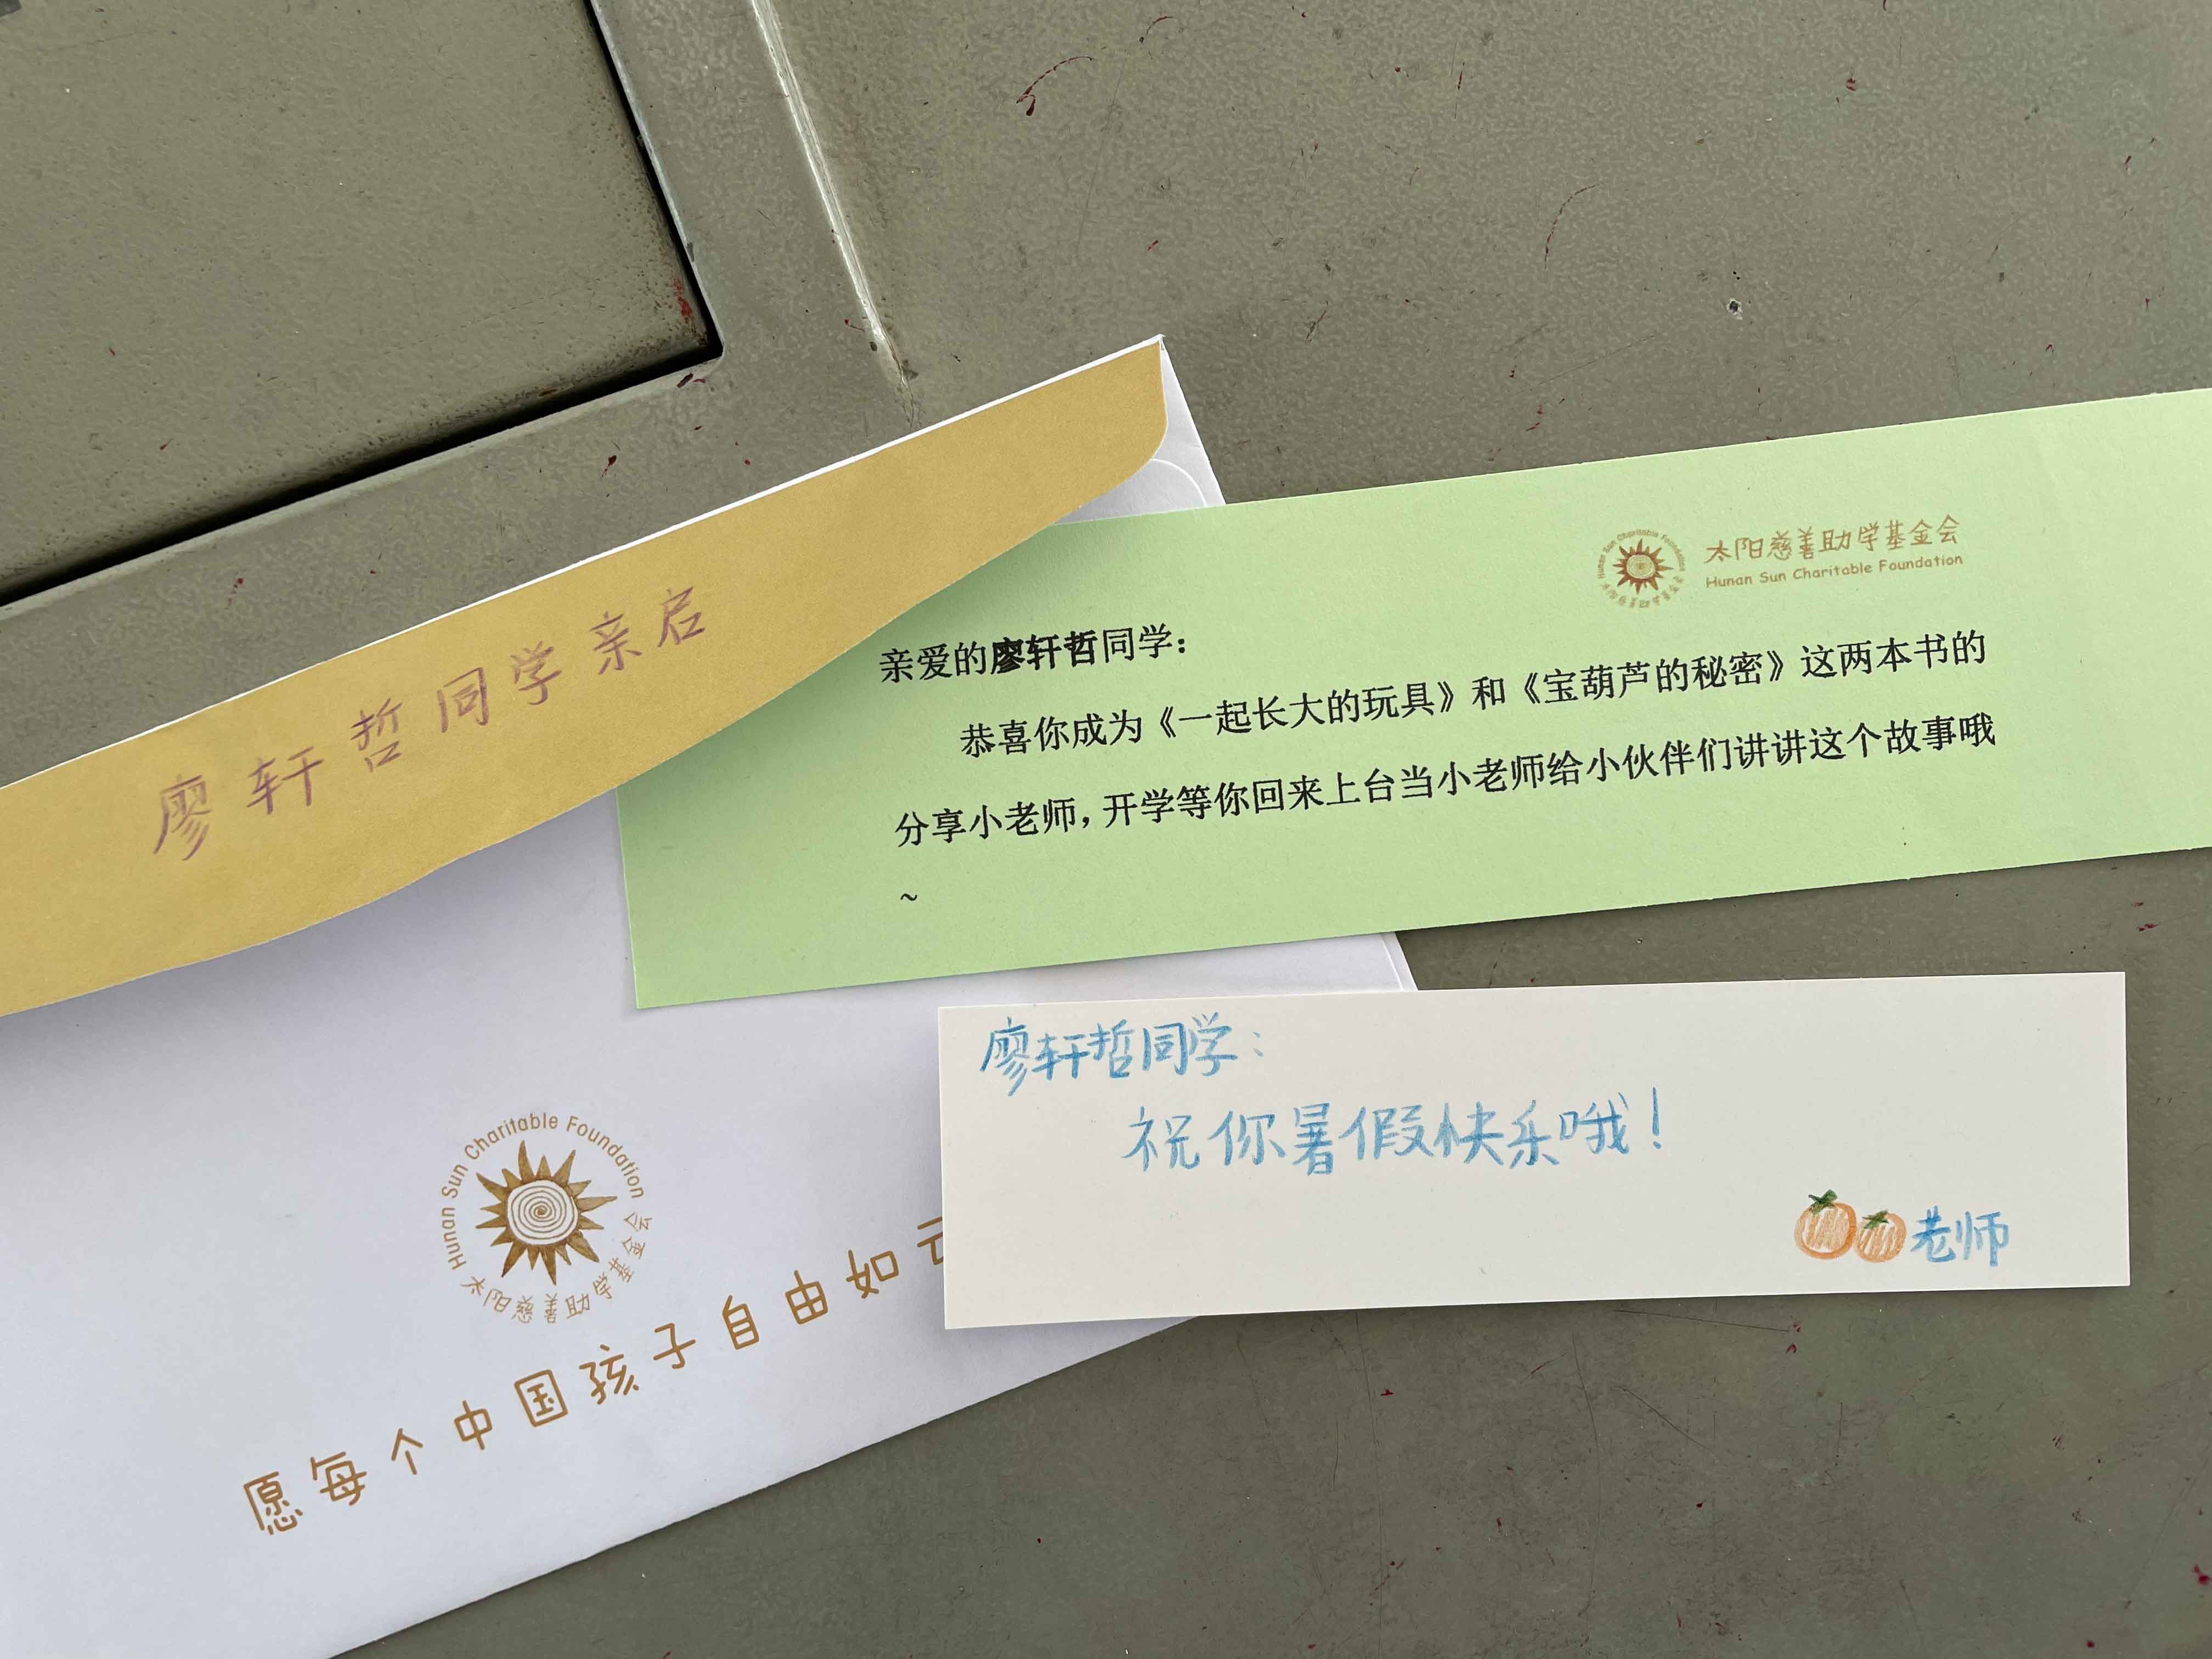 廖轩哲同学亲启
太阳慈善助学基金会
Hunan Sun Charitable Foundation
Hunan Sun Charitable Foundation
太阳慈善助学基金会
亲爱的廖轩哲同学：
恭喜你成为《一起长大的玩具》和《宝葫芦的秘密》这两本书的
分享小老师，开学等你回来上台当小老师给小伙伴们讲讲这个故事哦
~
廖轩哲同学：
祝你暑假快乐哦！
老师
Hunan Sun Charitable Foundation
太阳慈善助学基金会
愿每个中国孩子自由如